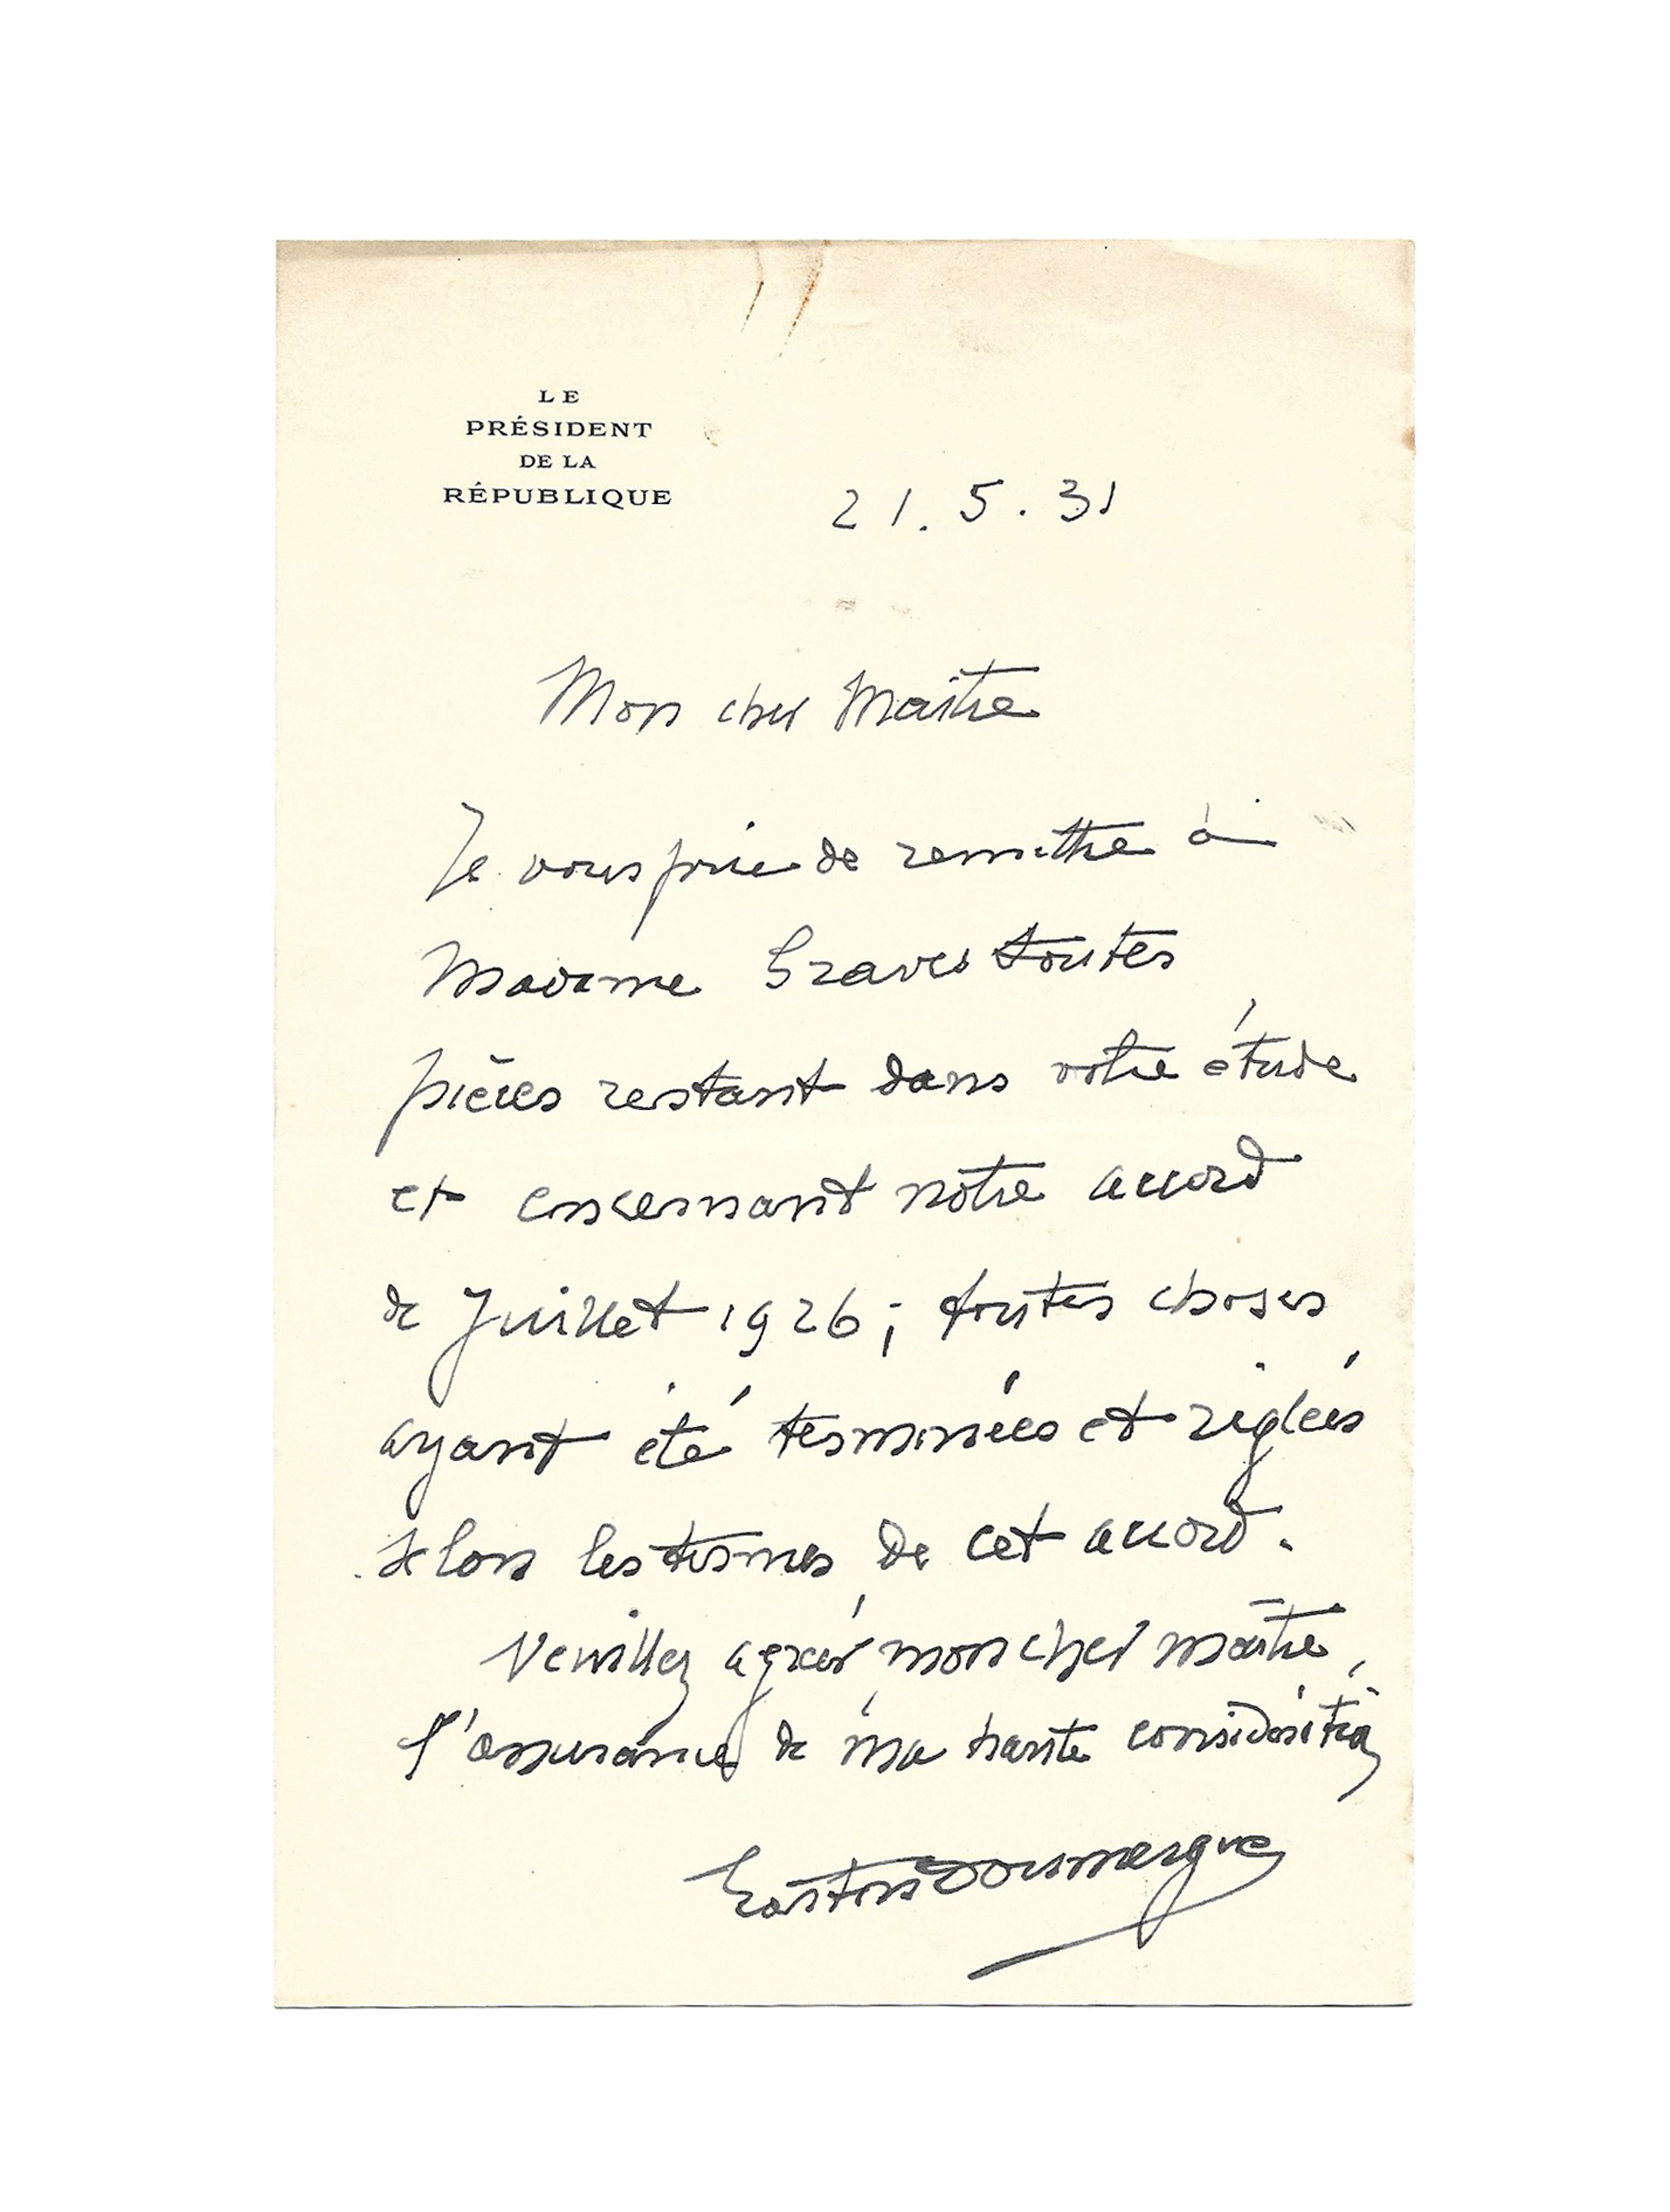 LE
PRÉSIDENT
DE LA
RÉPUBLIQUE
21.5.31
Mon cher Maître
Je vous prie de remettre à
Madame Graves toutes
pièces restant dans votre étude
et concernant notre accord
de Juillet 1926; toutes choses
ayant été terminées et réglées
selon les termes de cet accord.
Veuillez agréer mon cher maître,
l'assurance de ma haute considération
Gaston Doumergue